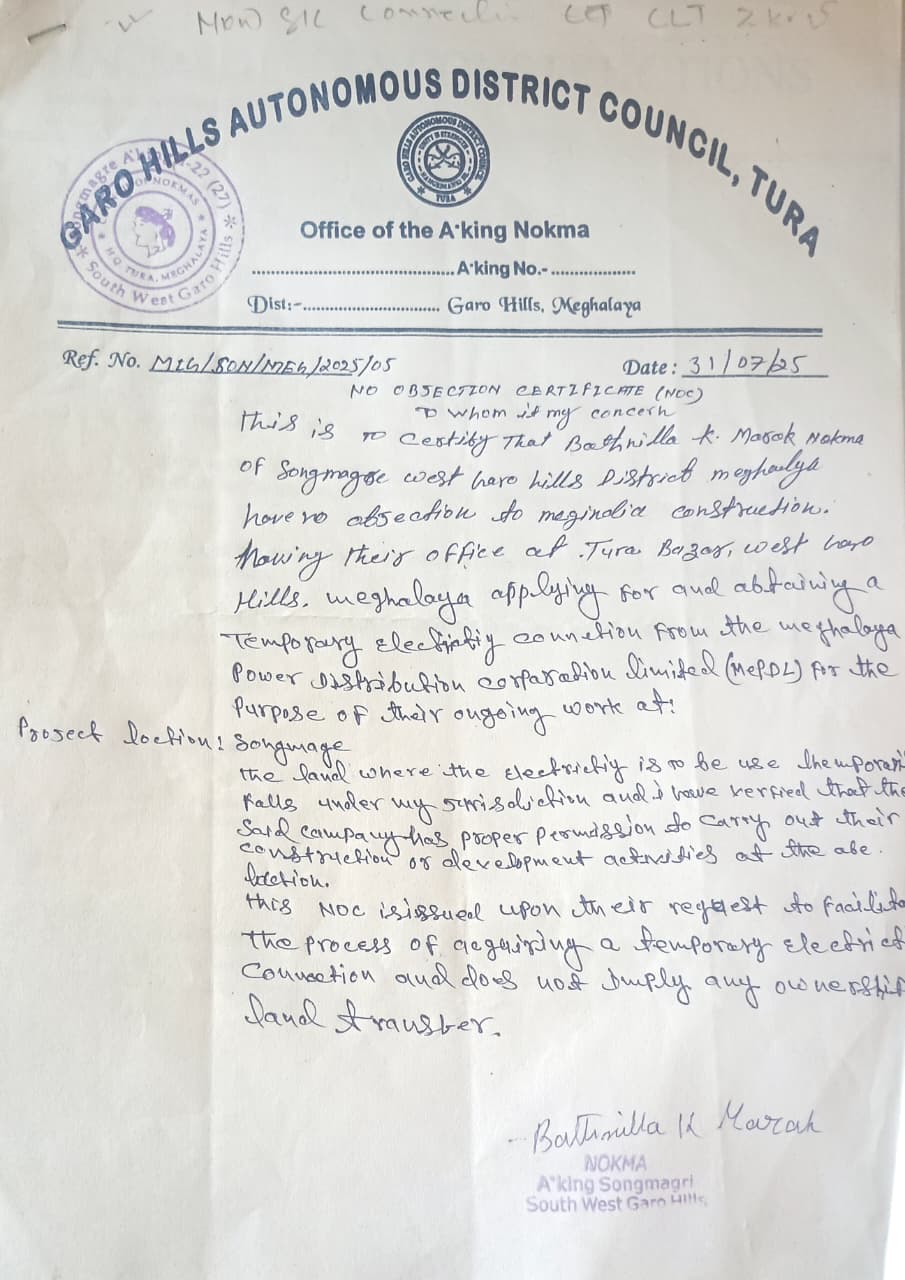 GARO HILLS AUTONOMOUS DISTRICT COUNCIL, TURA
GARO HILLS AUTONOMOUS DISTRICT COUNCIL
UNITY IS STRENGTH
TURA
OF NOKMAS
H.Q. TURA, MEGHALAYA
South West Garo Hills
Office of the A·king Nokma
A·king No.-
Dist:- Garo Hills, Meghalaya
Ref. No. MIG/SON/MEG/2025/05 Date: 31/07/25
NO OBSECTION CERTIFICATE (NOC)
To whom it my concern
This is to certify That Bathnilla K. Marak Nokma
of Songmagre west haro hills District meghaulya
have no obsection to meginolia construction.
having their office at Tura Bazar, west haro
Hills. meghalaya applying for and abtaining a
Temporary electricity connetion From the meghalaya
Power Distribution corparation limited (MePDL) For the
Purpose of their ongoing work at:
Project loction: Songmage
the land where the electrictiy is to be use themporari
Falls under my and i have verfied that the
Said campany has proper permission to carry out their
construction or development activities at the abe.
loction.
this NOC is issued upon their request to facilita
the process of acquiring a temporary electrict
Connection and does not imply any ownership
land transfer.
Bathnilla K Marak
NOKMA
A'king Songmagri
South West Garo Hills,